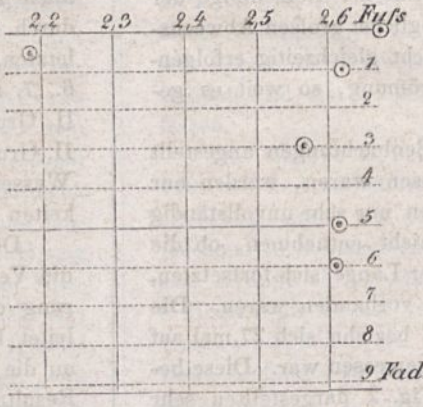 2,2 2,3 2,4 2,5 2,6 Fuſs
1
2
3
4
5
6
7
8
9 Fad